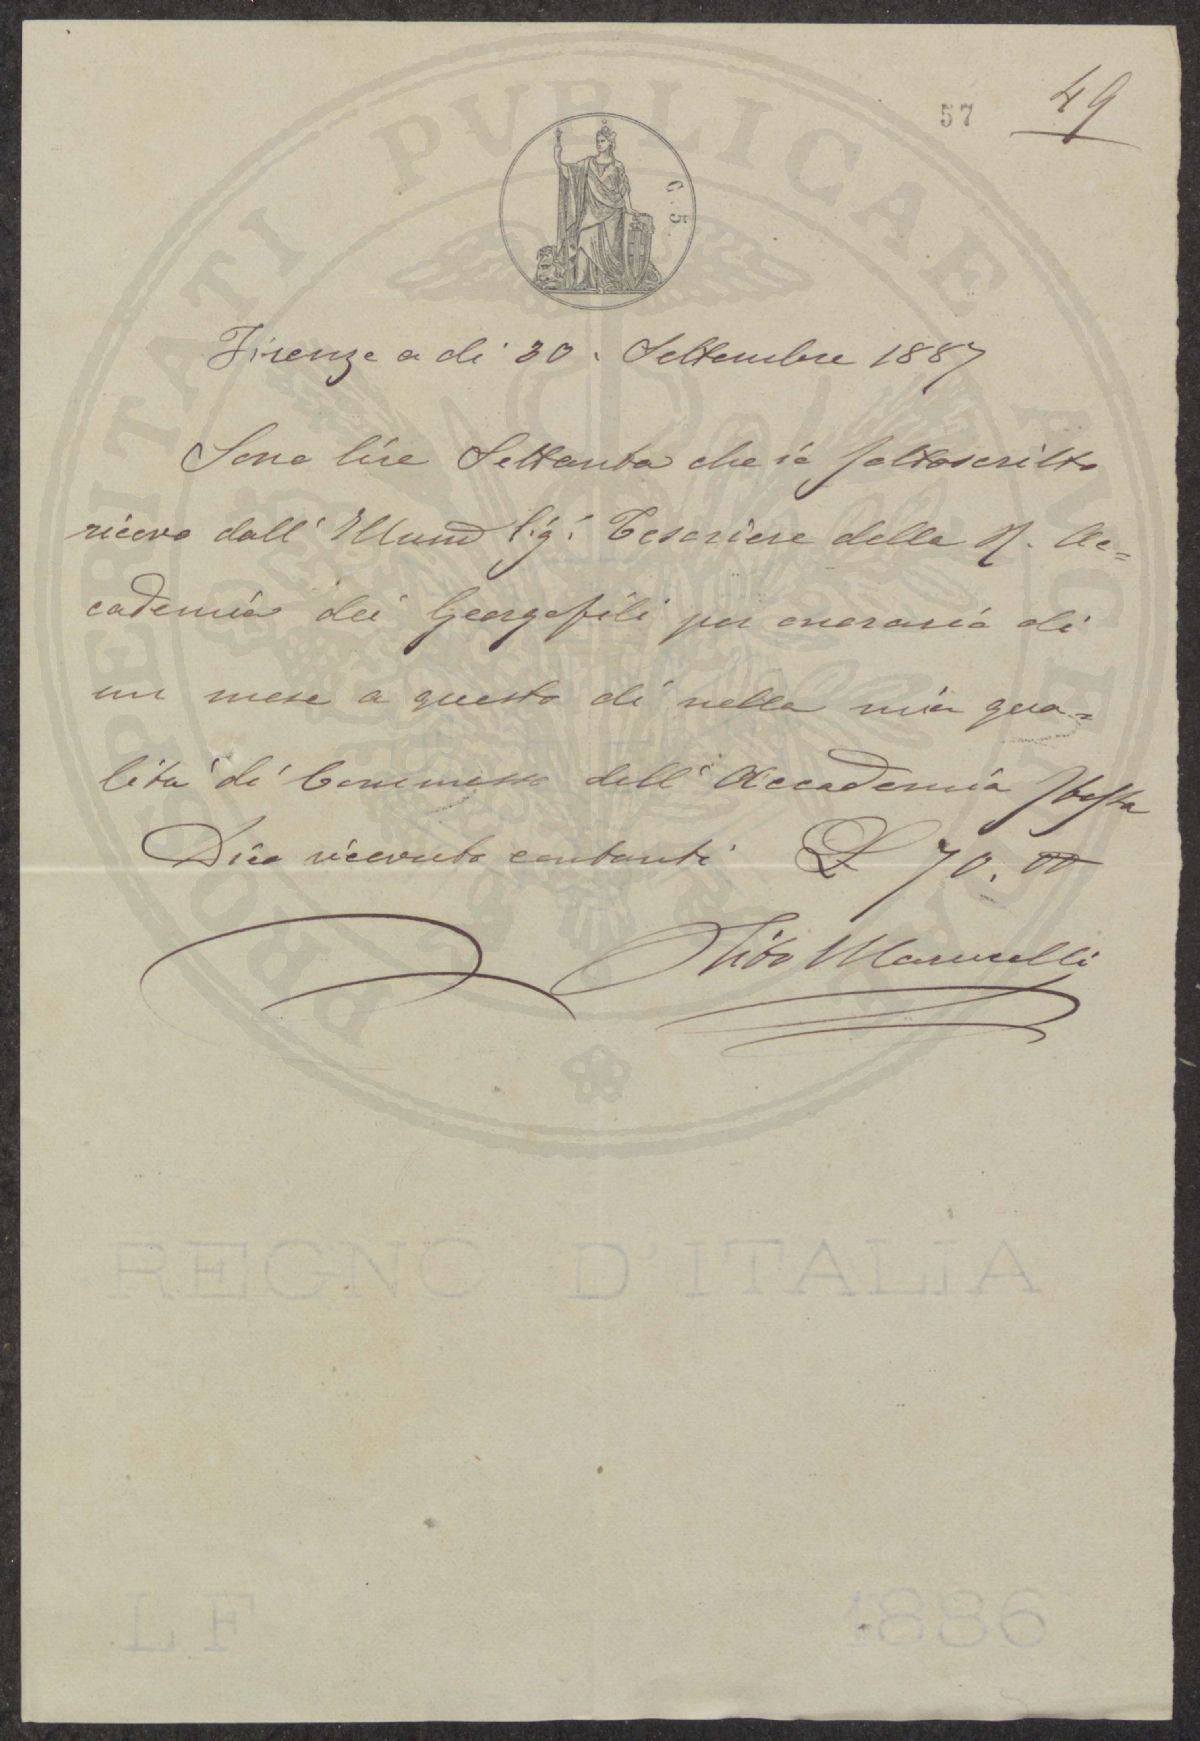 57 49
C. 5
PROSPERITATI PVBLICAE AVGENDAE
Firenze a dì 30. Settembre 1887
Sono lire Settanta che io sottoscritto
ricevo dall' Illumo Sigr Tesoriere della R. Ac=
cademia dei Georgofili per onorario di
un mese a questo dì nella mia qua=
lità di Commesso dell' Accademia stessa
Dico ricevuto contanti £ 70.00
Tito Marucelli
REGNO D'ITALIA
LF 1886